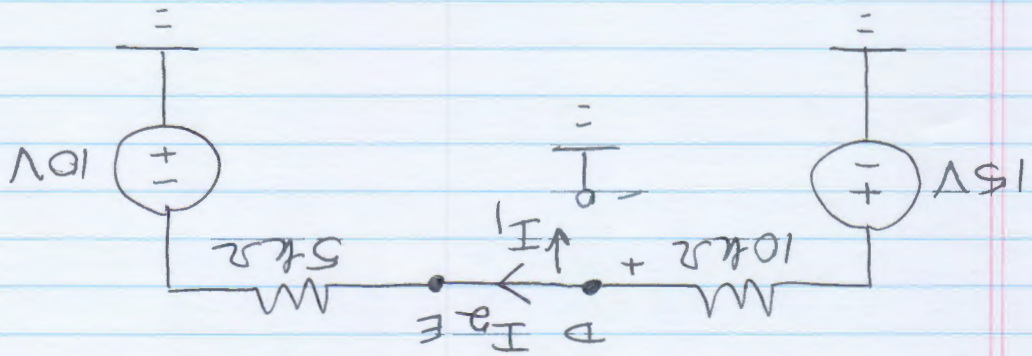 D I₂ E
10kΩ + I₁ 5kΩ
−
15V + −
− + 10V